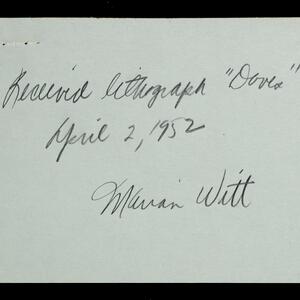 Received lithograph "Doves"
April 2, 1952
Marian Witt